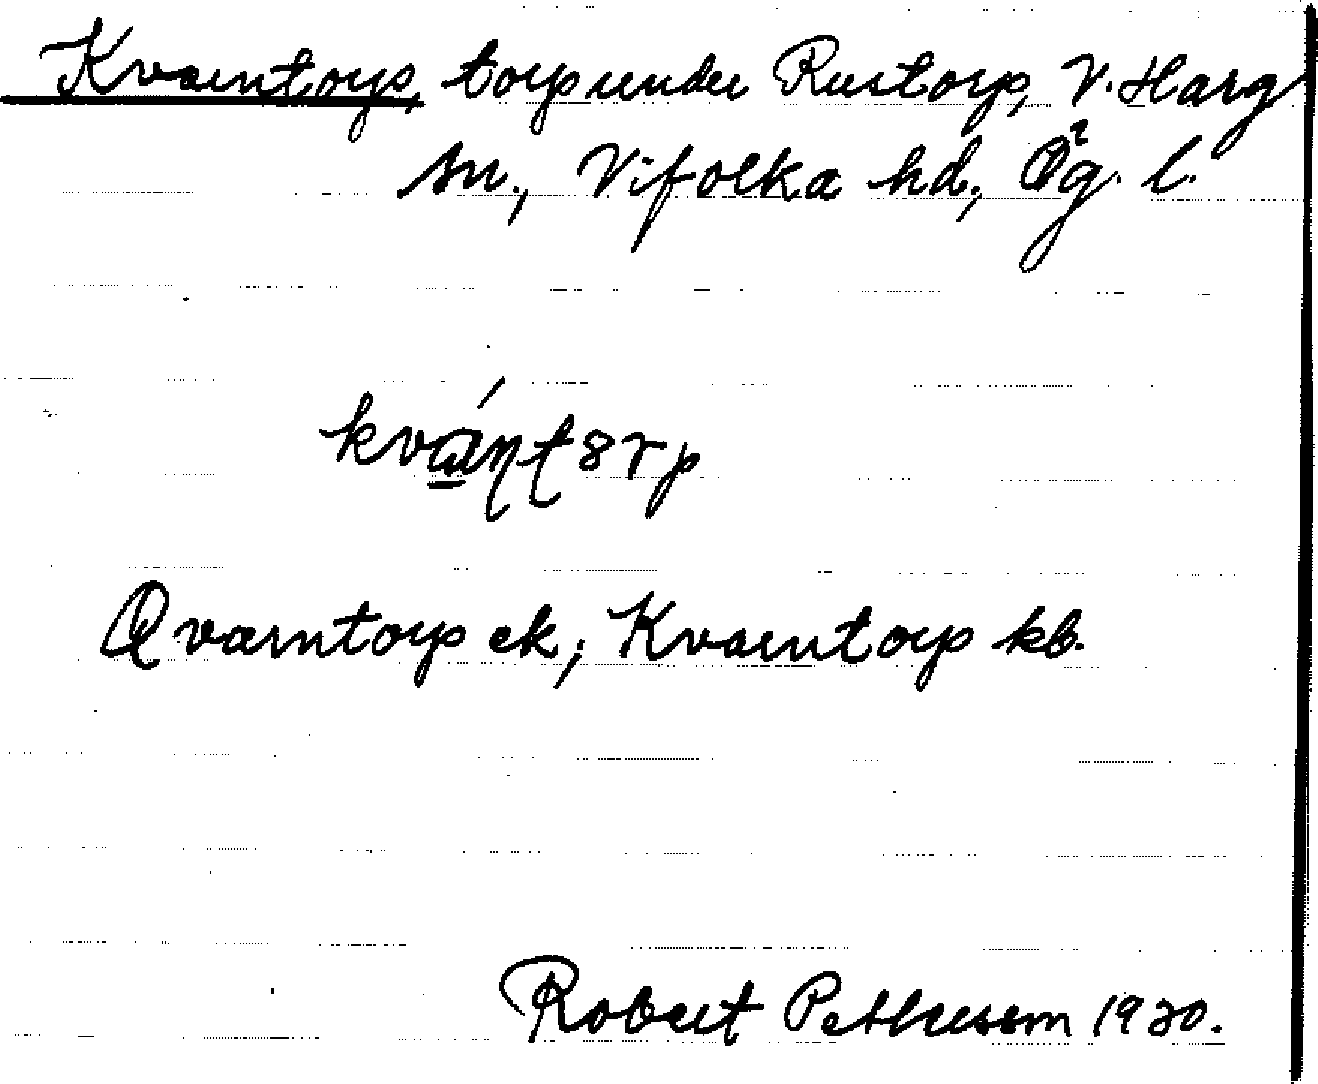 Kvarntorp, torp under Rustorp, V. Harg
sn., Vifolka hd., Ög. l.
Qvarntorp ek; Kvarntorp kb.
Robert Pettersson 1930.